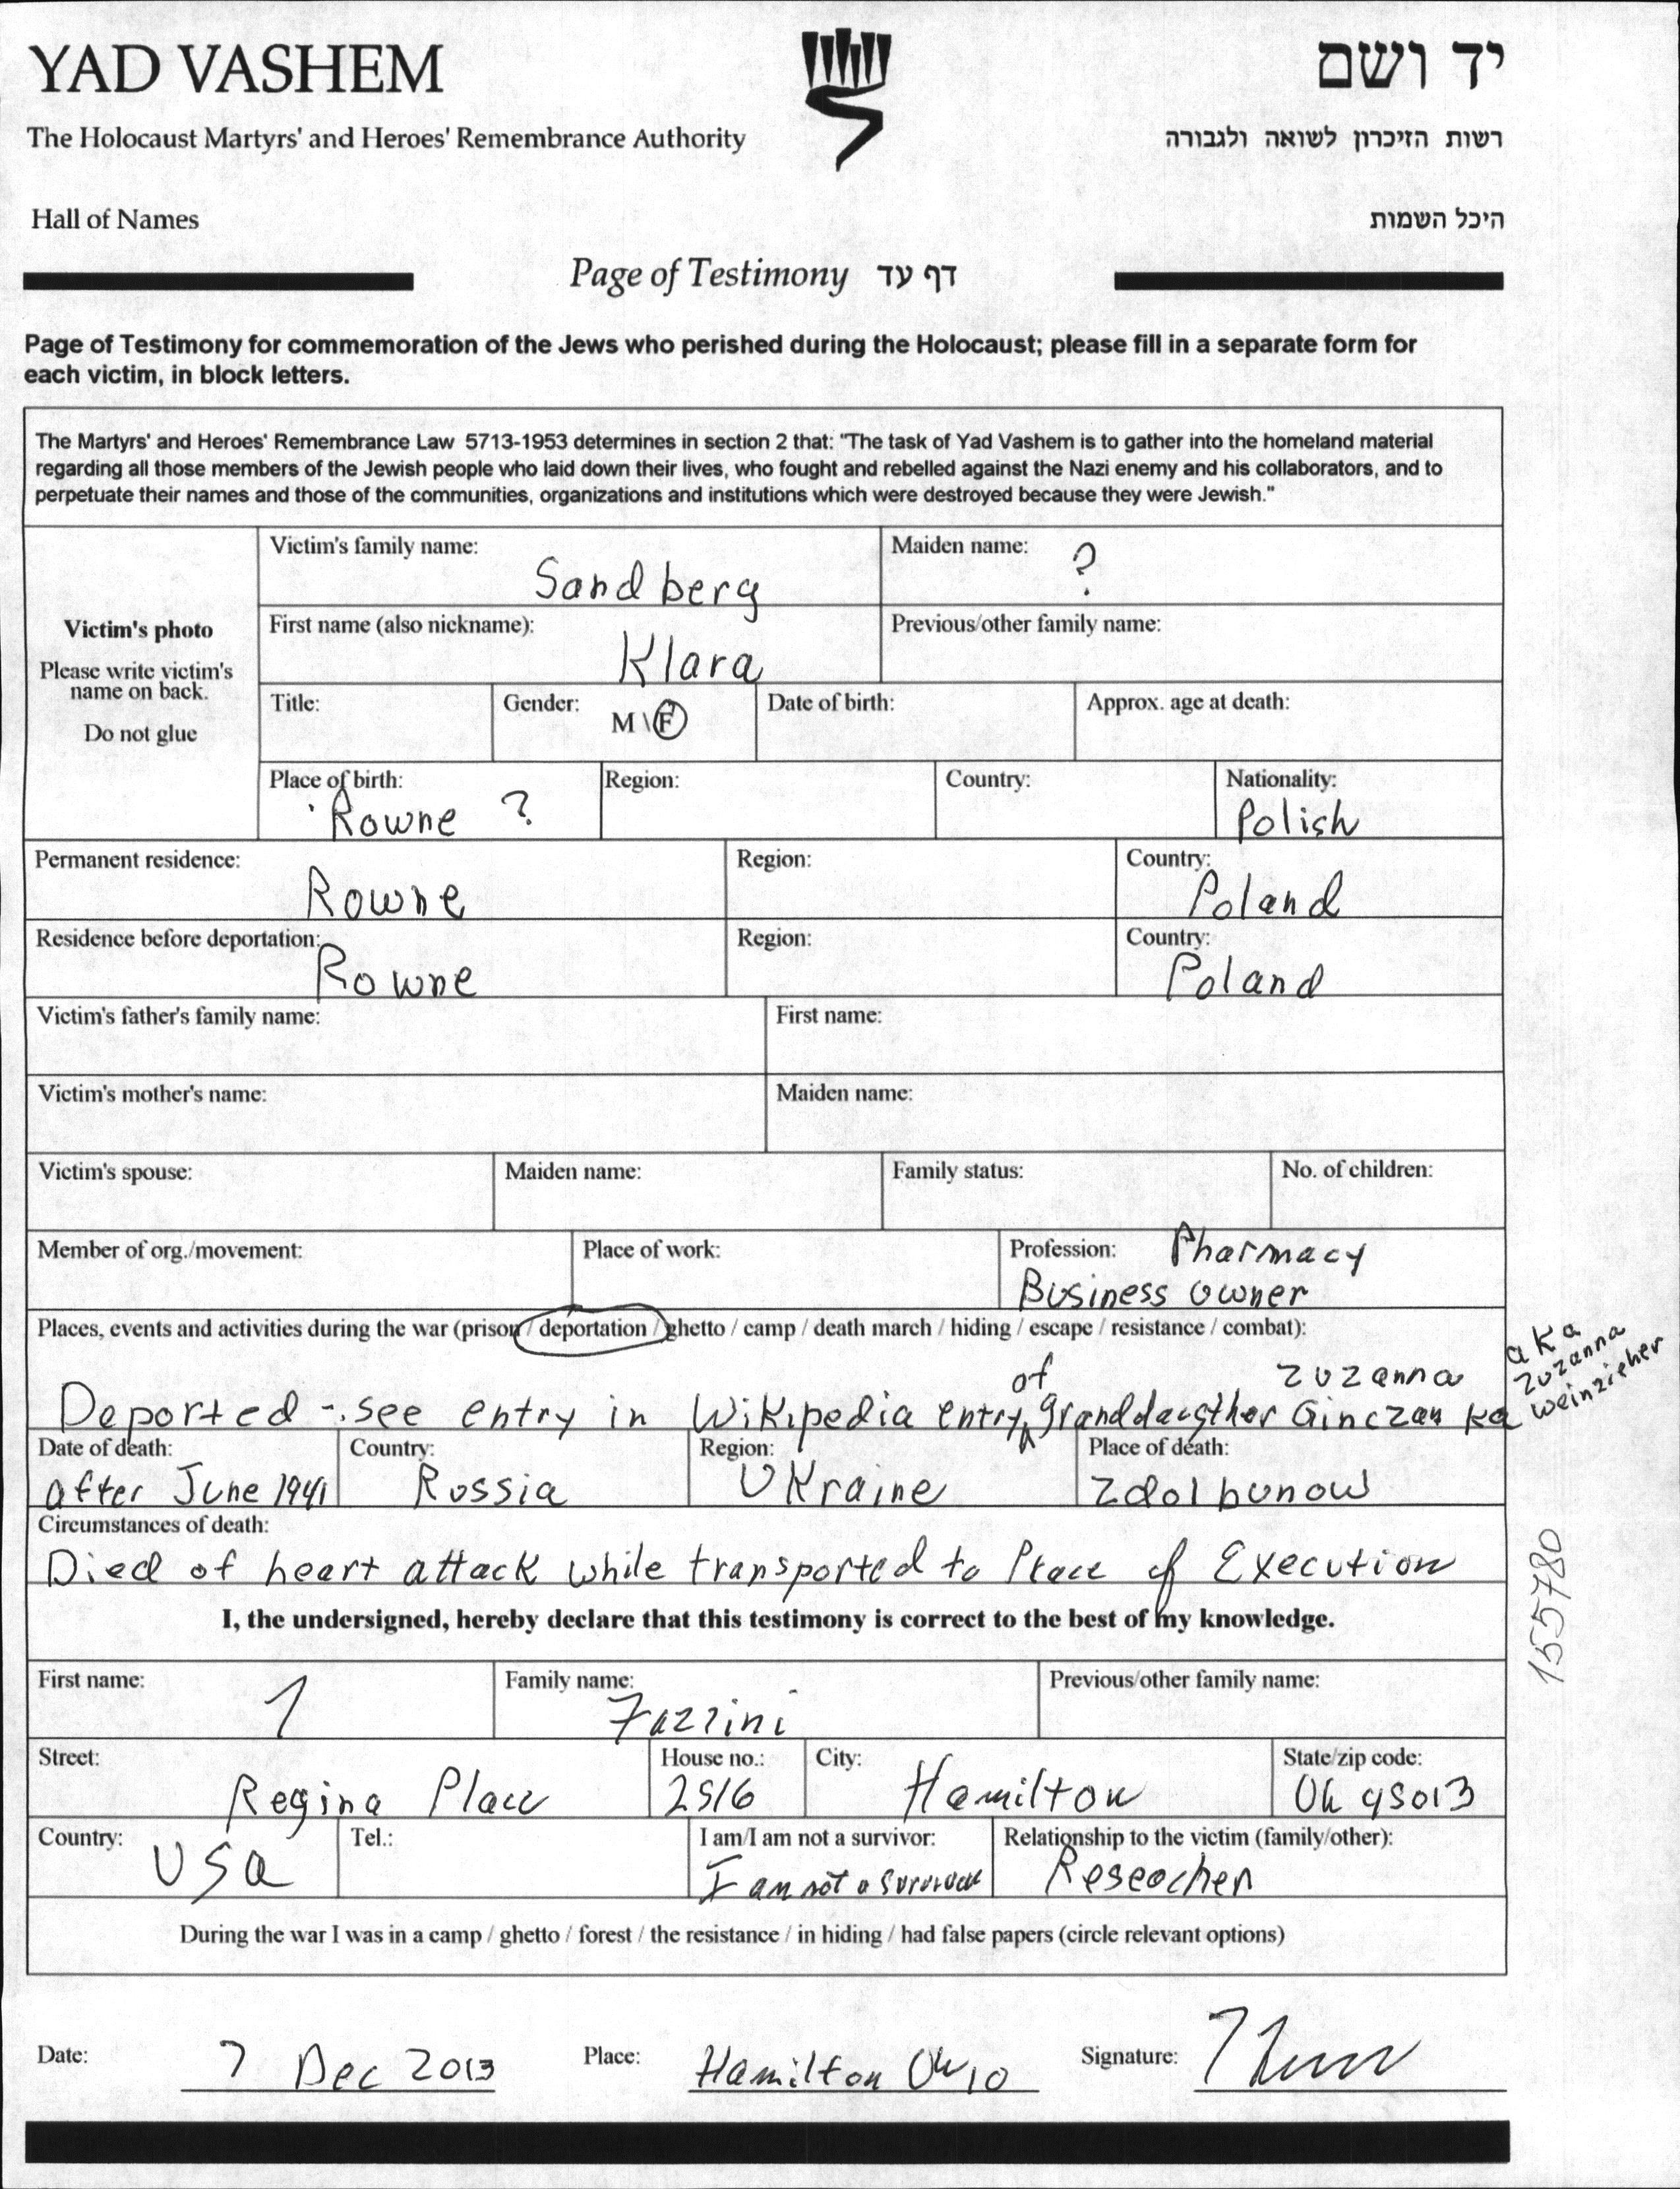 YAD VASHEM
יד ושם
The Holocaust Martyrs' and Heroes' Remembrance Authority
רשות הזיכרון לשואה ולגבורה
Hall of Names
היכל השמות
Page of Testimony דף עד
Page of Testimony for commemoration of the Jews who perished during the Holocaust; please fill in a separate form for
each victim, in block letters.
The Martyrs' and Heroes' Remembrance Law 5713-1953 determines in section 2 that: "The task of Yad Vashem is to gather into the homeland material
regarding all those members of the Jewish people who laid down their lives, who fought and rebelled against the Nazi enemy and his collaborators, and to
perpetuate their names and those of the communities, organizations and institutions which were destroyed because they were Jewish."
Victim's photo
Please write victim's
name on back.
Do not glue
Victim's family name: Sandberg
Maiden name: ?
First name (also nickname): Klara
Previous/other family name:
Title:
Gender: M \ F
Date of birth:
Approx. age at death:
Place of birth: Rowne ?
Region:
Country:
Nationality: Polish
Permanent residence: Rowne
Region:
Country: Poland
Residence before deportation: Rowne
Region:
Country: Poland
Victim's father's family name:
First name:
Victim's mother's name:
Maiden name:
Victim's spouse:
Maiden name:
Family status:
No. of children:
Member of org./movement:
Place of work:
Profession: Pharmacy
Business Owner
Places, events and activities during the war (prison / deportation / ghetto / camp / death march / hiding / escape / resistance / combat):
Deported - see entry in Wikipedia entry of granddaugther Zuzanna Ginczanka
aka
Zuzanna
Weinzieher
Date of death: after June 1941
Country: Russia
Region: Ukraine
Place of death: Zdolbunow
Circumstances of death:
Died of heart attack while transported to Place of Execution
155780
I, the undersigned, hereby declare that this testimony is correct to the best of my knowledge.
First name:
Family name: Fazzini
Previous/other family name:
Street: Regina Place
House no.: 2516
City: Hamilton
State/zip code: Oh 45013
Country: USA
Tel.:
I am/I am not a survivor: I am not a survivor
Relationship to the victim (family/other): Reseacher
During the war I was in a camp / ghetto / forest / the resistance / in hiding / had false papers (circle relevant options)
Date: 7 Dec 2013
Place: Hamilton Ohio
Signature: